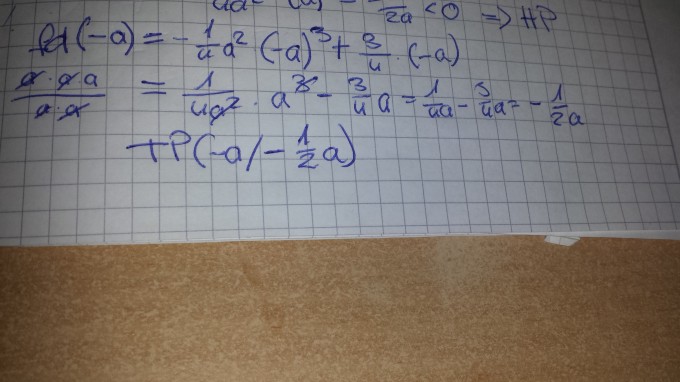 2a < 0 => HP
fa(-a) = - 1/4a² (-a)³ + 3/4 · (-a)
a·a·a/a·a = 1/4a² · a³ - 3/4 a = 1/4a - 3/4a = - 1/2a
TP(-a/- 1/2a)